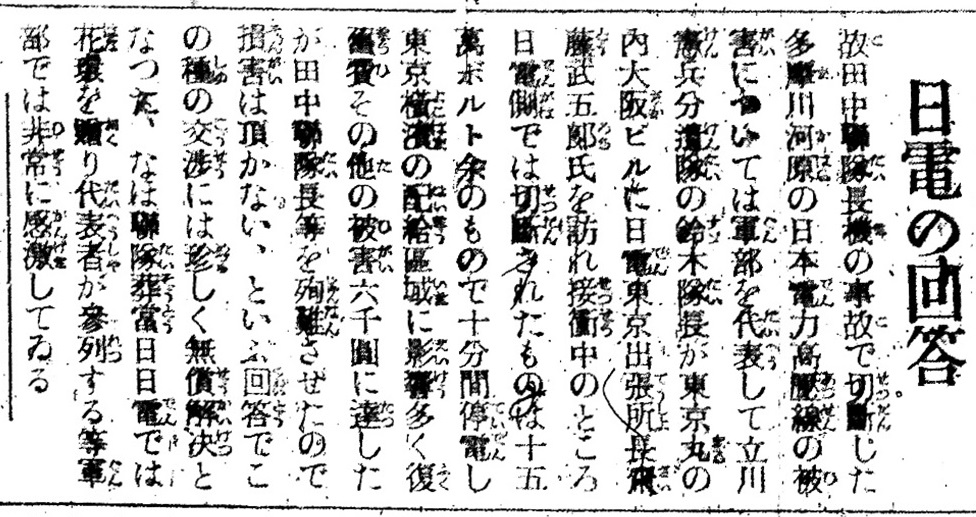 日電の回答
故田中聯隊長機の事故で切斷した
多摩川河原の日本電力高壓線の被
害については軍部を代表して立川
憲兵分遣隊の鈴木隊長が東京丸の
内大阪ビルに日電東京出張所長
藤武五郎氏を訪れ接衝中のところ
日電側では切斷されたものは十五
萬ボルト余のもので十分間停電し
東京橫濱の配給區域に影響多く復
舊費その他の被害六千圓に達した
が田中聯隊長等を殉難させたので
損害は頂かない、といふ回答でこ
の種の交渉には珍しく無償解決と
なつた、なほ聯隊葬當日日電では
花環を贈り代表者が參列する等軍
部では非常に感激してゐる